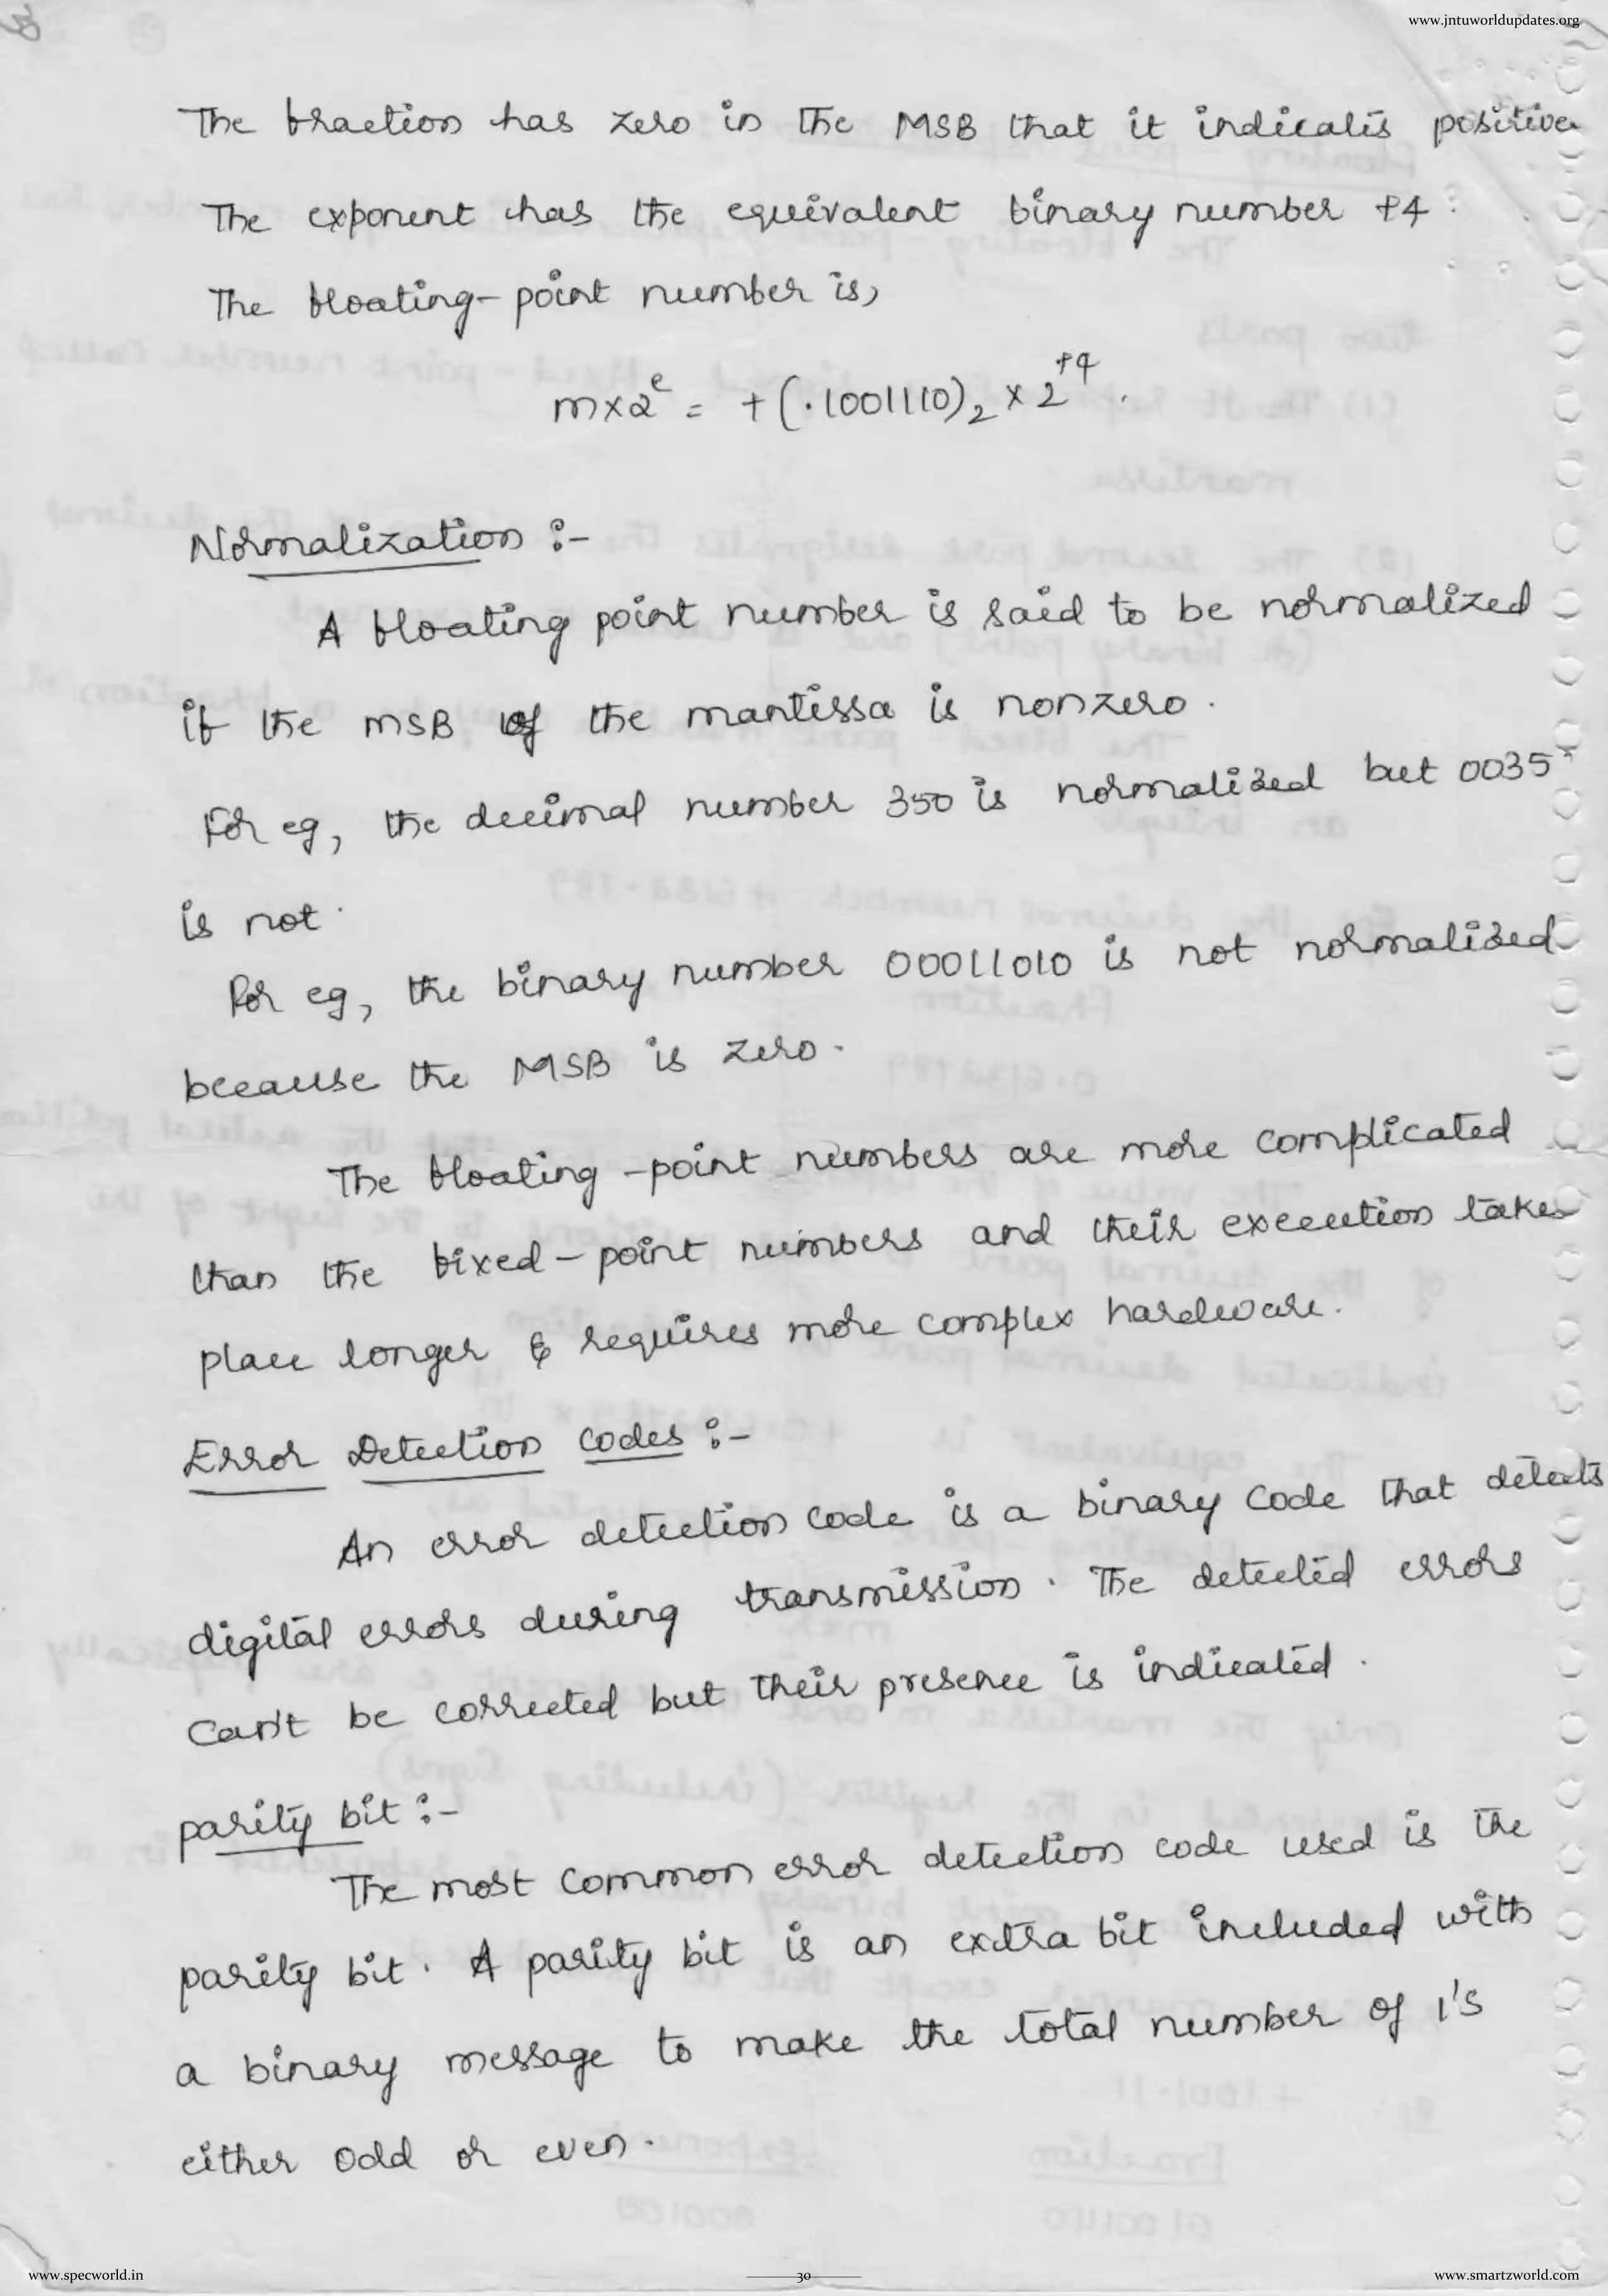 www.jntuworldupdates.org
The fraction has zero in the MSB that it indicates positive
The exponent has the equivalent binary number +4.
The floating-point number is,
m×2^e = +(.1001110)₂ × 2^+4.
Normalization :-
A floating point number is said to be normalized
if the MSB of the mantissa is nonzero.
For eg, the decimal number 350 is normalized but 0035
is not.
For eg, the binary number 00011010 is not normalized
because the MSB is zero.
The floating-point numbers are more complicated
than the fixed-point numbers and their execution takes
place longer & requires more complex hardware.
Error Detection codes :-
An error detection code is a binary code that detects
digital errors during transmission. The detected errors
can't be corrected but their presence is indicated.
parity bit :-
The most common error detection code used is the
parity bit. A parity bit is an extra bit included with
a binary message to make the total number of 1's
either odd or even.
www.specworld.in
30
www.smartzworld.com